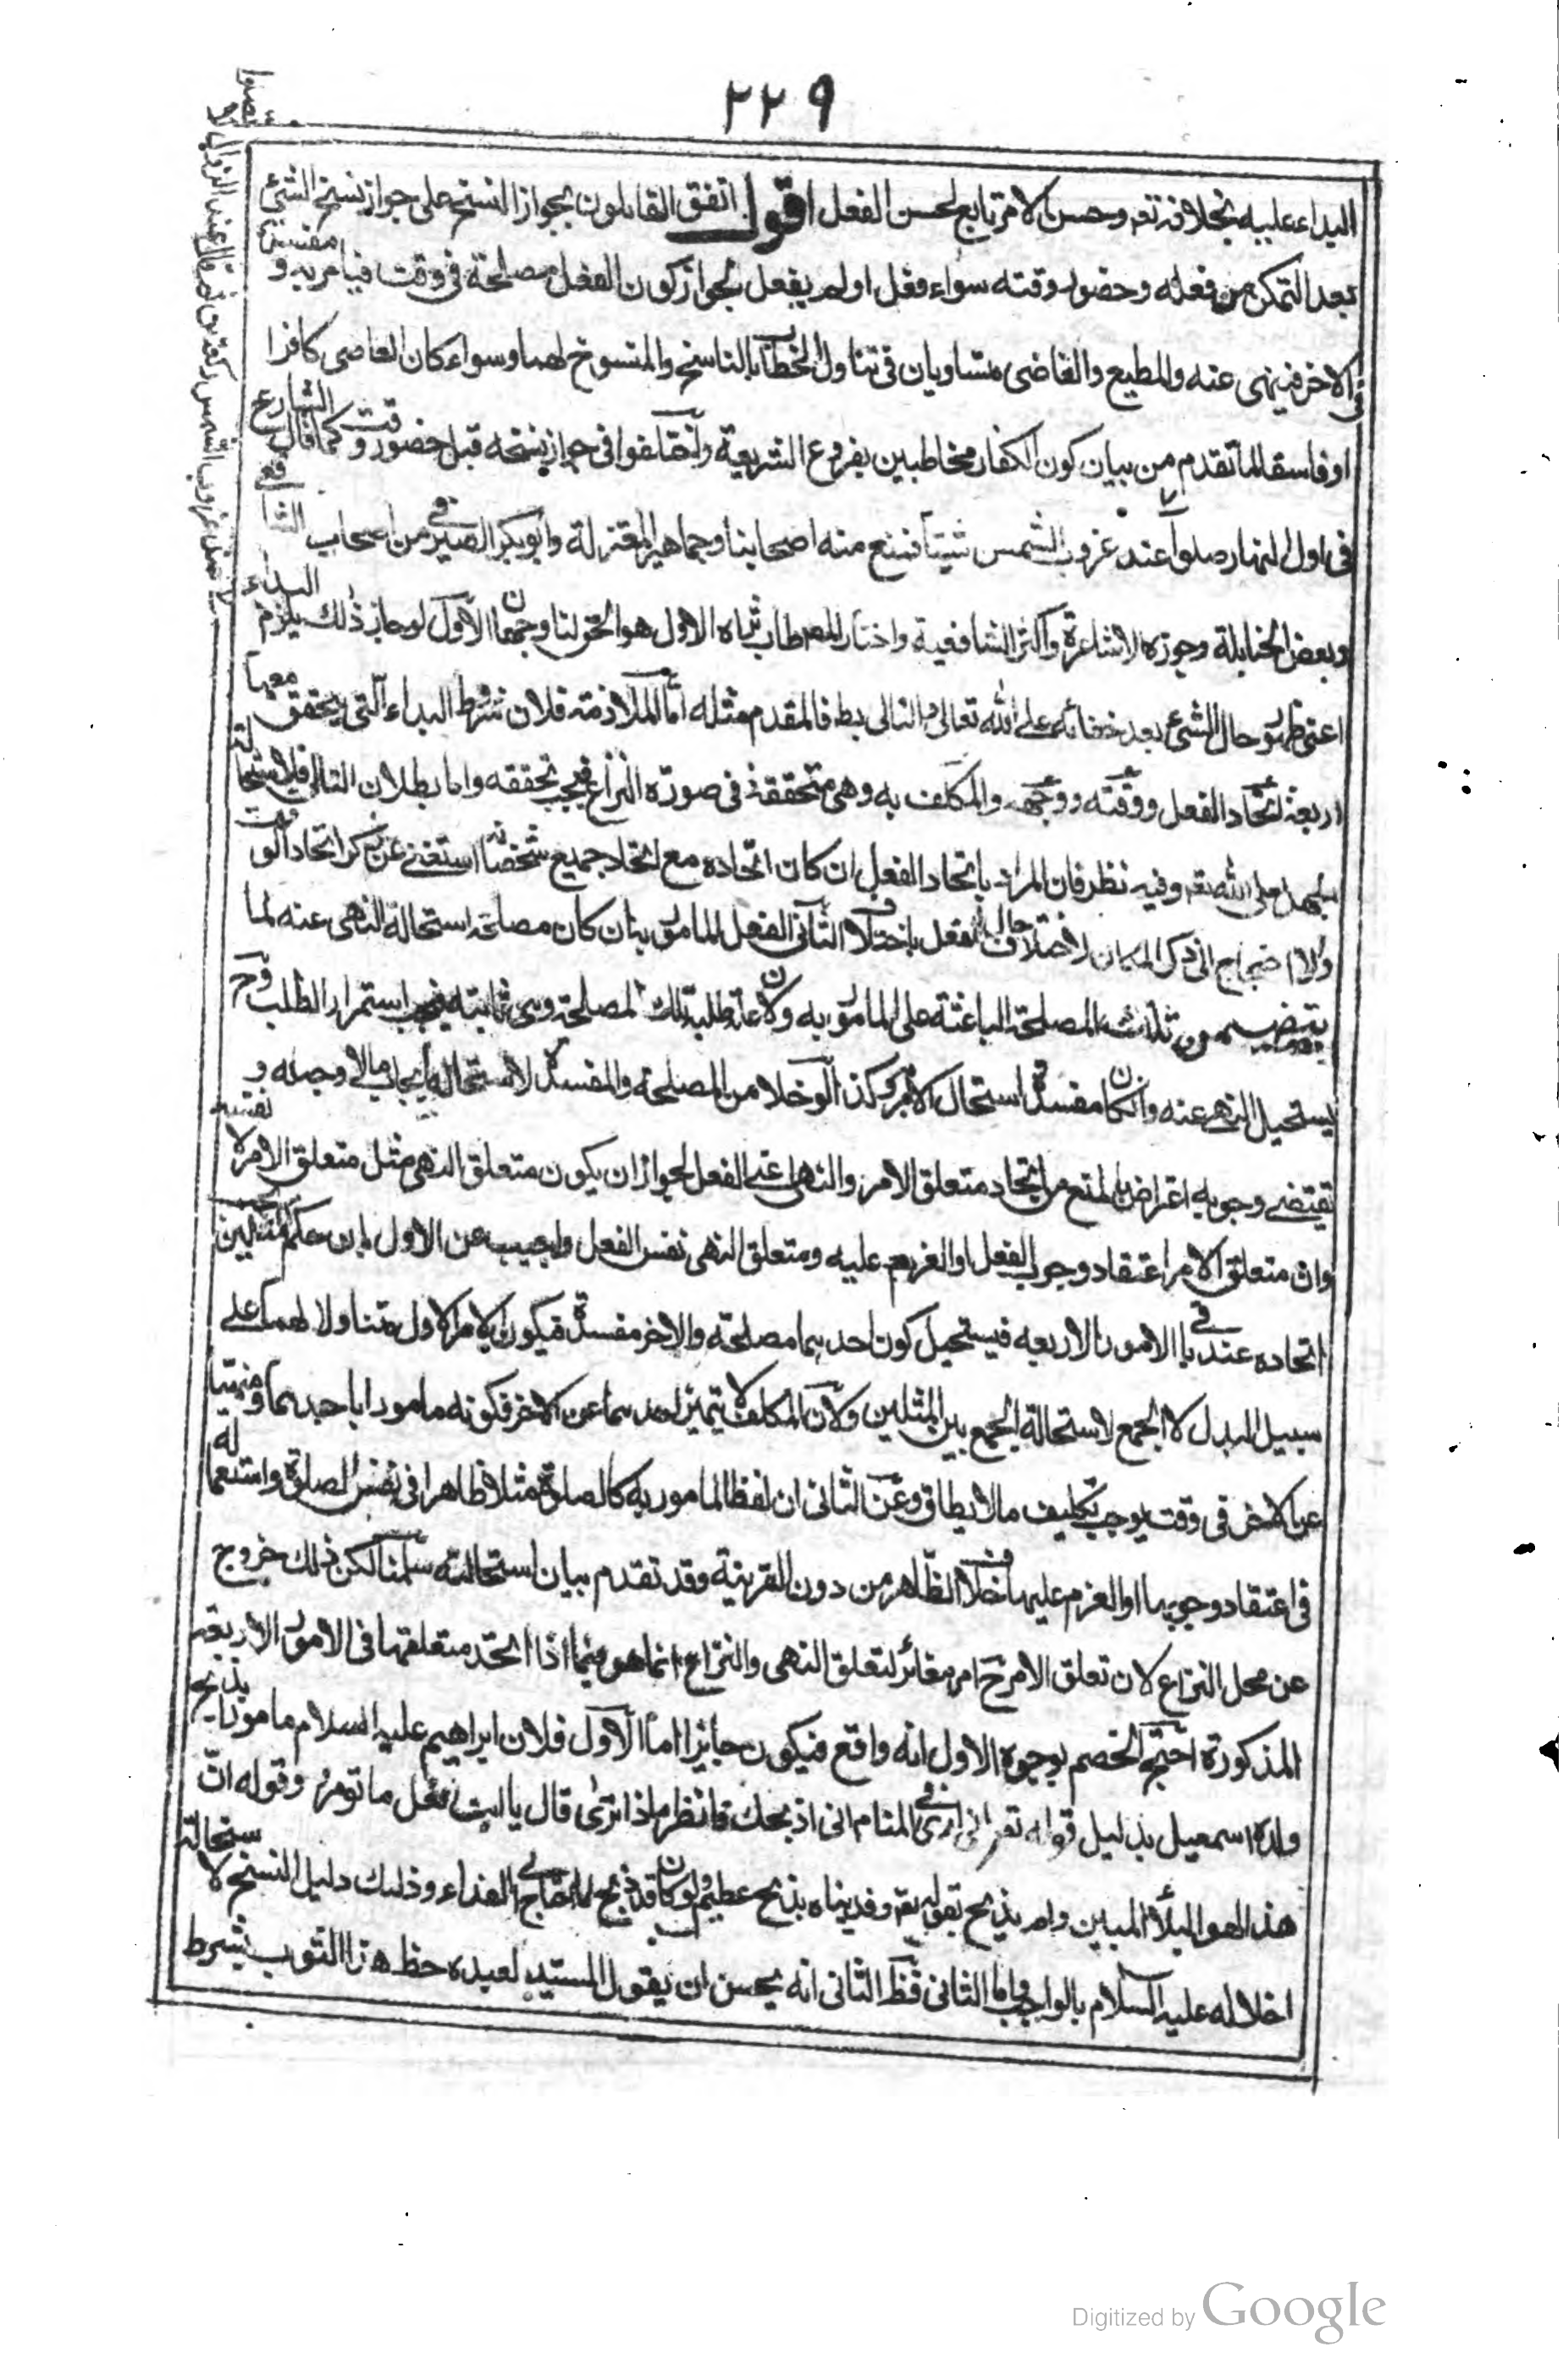 ٢٢٩
البداء عليه بخلافه تعه وحسن الامر تابع لحسن الفعل اقول اتفق القايلون بجواز النسخ على جواز نسخ الشئ
بعد التمكن من فعله وحضور وقته سواء فعل او لم يفعل لجواز كون الفعل مصلحة فى وقت فيامر به و مفسدة
فى الاخر فينهى عنه والمطيع والعاصى متساويان فى تناول الخطاب بالناسخ والمنسوخ لهما وسواء كان العاصى كافرا
او فاسقا لما تقدم من بيان كون الكفار مخاطبين بفروع الشريعة واختلفوا فى جواز نسخه قبل حضور وقت كما قال الشارع
فى اول النهار صلوا عند غروب الشمس فمنع منه اصحابنا وجماهير المعتزلة وابو بكر الصيرفى من اصحاب الشافعى
وبعض الحنابلة وجوزه الاشاعرة واكثر الشافعية واختار المص طاب ثراه الاول هو الحق لنا وجهان الاول لو جاز ذلك يلزم البداء
اعنى ظهور حال الشئ بعد خفائه على الله تعالى والتالى بط فالمقدم مثله اما الملازمة فلان شروط البداء التى يتحقق معها
اربعة اتحاد الفعل ووقته ووجهه والمكلف به وهى متحققة فى صورة النزاع فيجب تحققه واما بطلان التالى فلاستحالة
الجهل على الله تعه وفيه نظر فان المراد باتحاد الفعل ان كان اتحاده مع اتحاد جميع مشخصاته استغنى عن ذكر اتحاد الوقت
والا احتاج الى ذكر المكان لاختلاف حال الفعل باختلافه الثانى الفعل المامور به ان كان مصلحة استحالة النهى عنه لما
يستحيل النهى عنه وان كان مفسدة استحال الامر وكذا لو خلا من المصلحة والمفسدة لاستحالة ايجاب مالا وجه له و
يقتضى وجوبه اعتراض بالمنع من اتحاد متعلق الامر والنهى عن الفعل لجواز ان يكون متعلق النهى مثل متعلق الامر لا نفسه
وان متعلق الامر اعتقاد وجوب الفعل او العزم عليه ومتعلق النهى نفس الفعل واجيب عن الاول بان حكم المثلين يجب
اتحاده عند باقى الامور الاربعه فيستحيل كون احديهما مصلحة والاخر مفسدة فيكون الامر الاول متناولا لهما على
سبيل البدل لا الجمع لاستحالة الجمع بين المثلين ولان المكلف لا يتميز احدهما عن الاخر فكونه مامورا باحدهما ومنهيا
عن الاخر فى وقت يوجب تكليف مالا يطاق وعن الثانى ان لفظ المامور به كالصلوة مثلا ظاهرا فى نفس الصلوة واستعماله
فى اعتقاد وجوبها او العزم عليها خلاف الظاهر من دون القرينة وقد تقدم بيان استحالته سلمنا لكن ذلك خروج
عن محل النزاع لان تعلق الامر ح امر مغائر لتعلق النهى والنزاع انما هو فيما اذا اتحد متعلقهما فى الامور الاربعة
المذكورة احتج الخصم بوجوه الاول انه واقع فيكون جايزا اما الاول فلان ابراهيم عليه السلام مامورا بذبح
ولده اسمعيل بدليل قوله تعه انى ارى فى المنام انى اذبحك فانظر ماذا ترى قال يا ابت افعل ما تومر وقوله ان
هذا لهو البلاء المبين ولم يذبح بقوله تعه وفديناه بذبح عظيم ولو كان قد ذبح لما احتاج الى الفداء وذلك دليل النسخ لاستحالة
اخلاله عليه السلام بالواجب واما الثانى فظ الثانى انه يحسن ان يقول السيد لعبده خط هذا الثوب بشرط
Digitized by Google